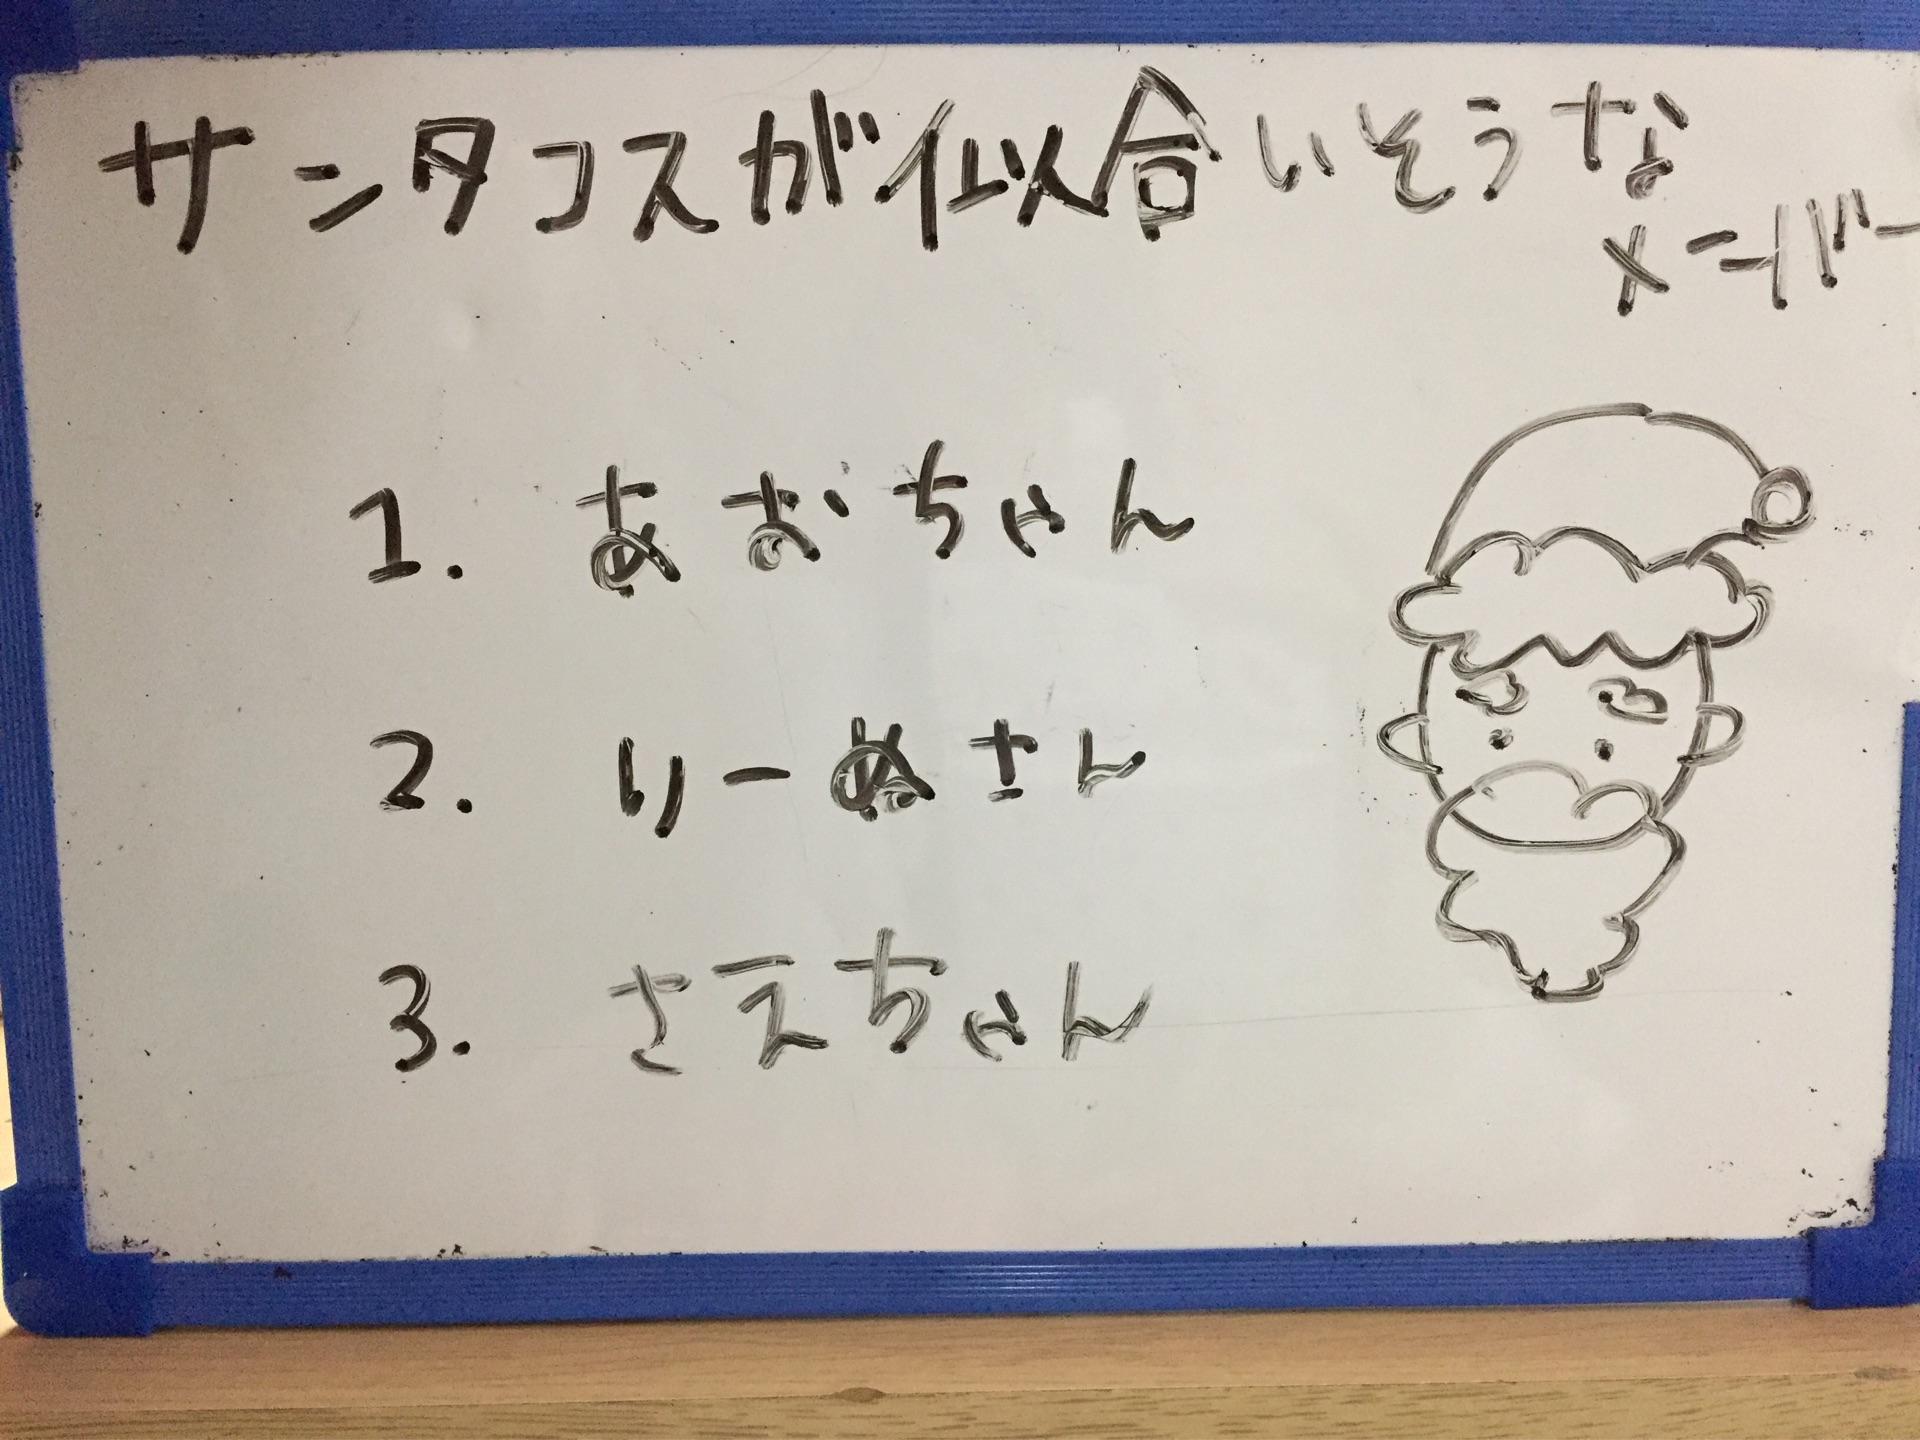 サンタコスが似合いそうな
メンバー
1. あおちゃん
2. りーぬさん
3. さえちゃん